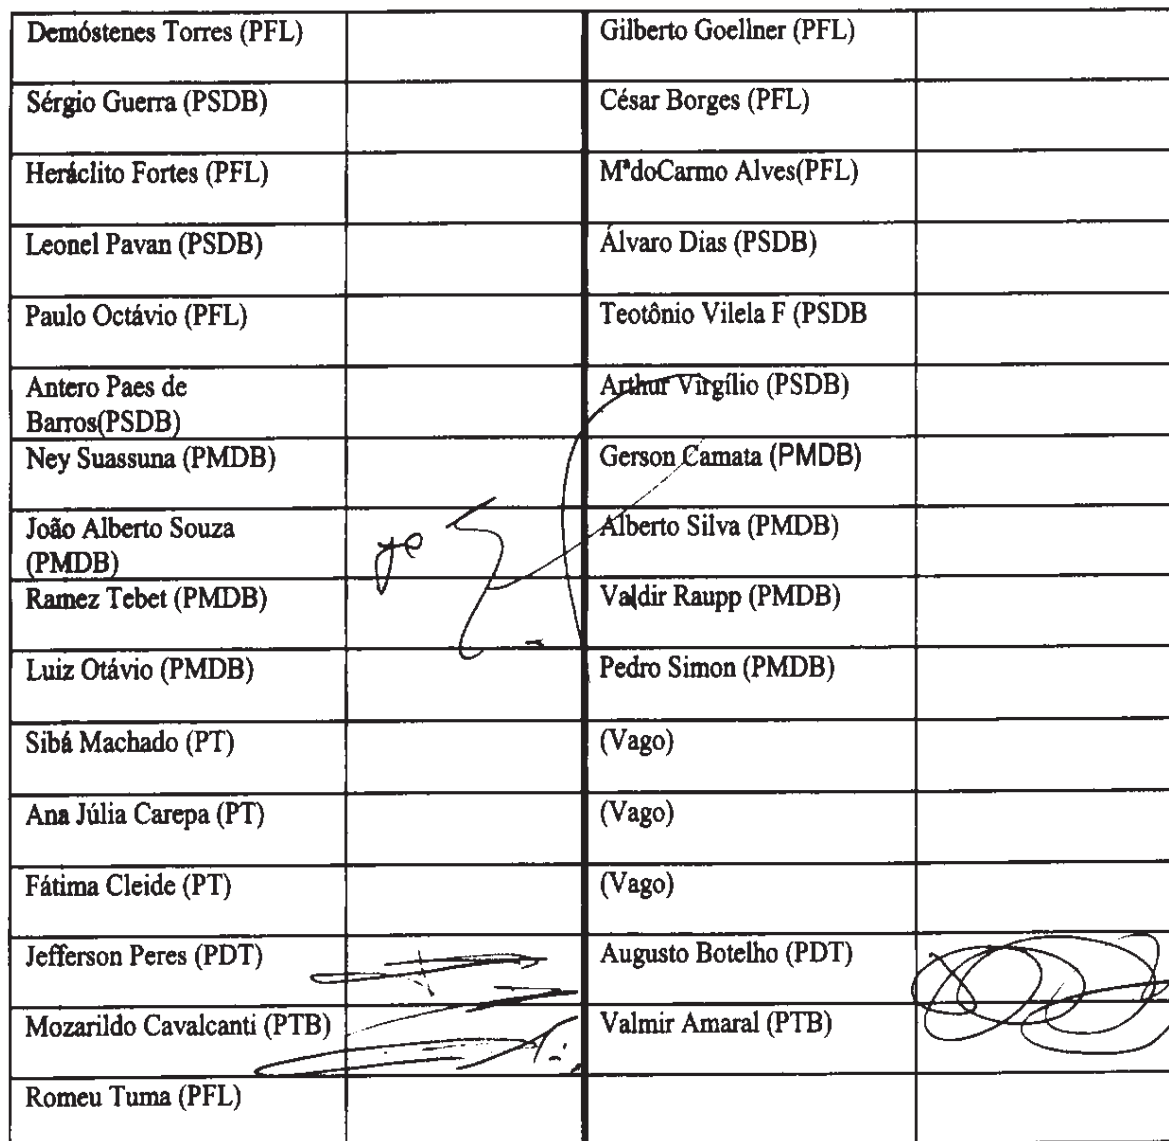 Demóstenes Torres (PFL) Gilberto Goellner (PFL)
Sérgio Guerra (PSDB) César Borges (PFL)
Heráclito Fortes (PFL) MªdoCarmo Alves(PFL)
Leonel Pavan (PSDB) Álvaro Dias (PSDB)
Paulo Octávio (PFL) Teotônio Vilela F (PSDB
Antero Paes de Arthur Virgílio (PSDB)
Barros(PSDB)
Ney Suassuna (PMDB) Gerson Camata (PMDB)
João Alberto Souza Alberto Silva (PMDB)
(PMDB)
Ramez Tebet (PMDB) Valdir Raupp (PMDB)
Luiz Otávio (PMDB) Pedro Simon (PMDB)
Sibá Machado (PT) (Vago)
Ana Júlia Carepa (PT) (Vago)
Fátima Cleide (PT) (Vago)
Jefferson Peres (PDT) Augusto Botelho (PDT)
Mozarildo Cavalcanti (PTB) Valmir Amaral (PTB)
Romeu Tuma (PFL)